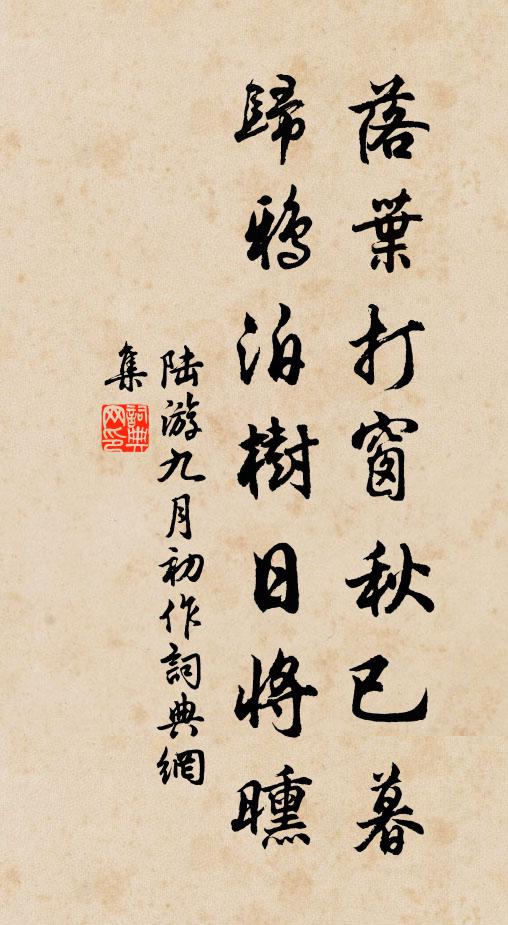 落葉打窗秋已暮
歸鴉泊樹日將曛
陆游九月初作詞典網
集
詞典
网印